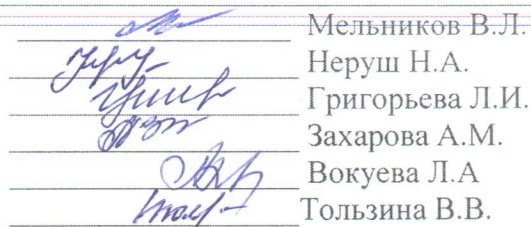 Мельников В.Л.
Неруш Н.А.
Григорьева Л.И.
Захарова А.М.
Вокуева Л.А
Тользина В.В.